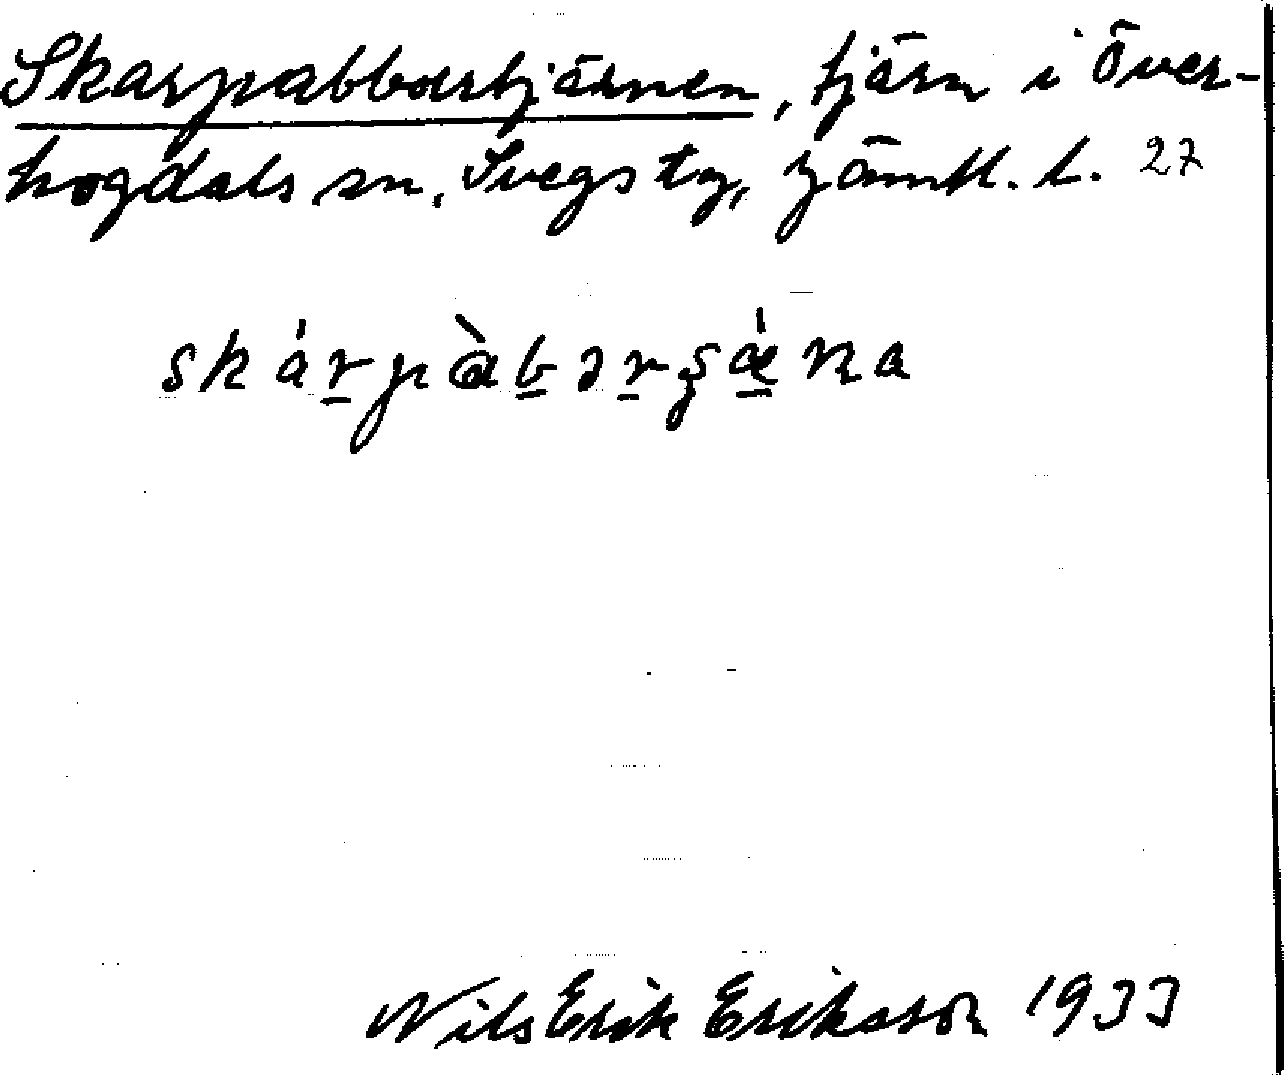 Skarpabbortjärnen, tjärn i Över-
hogdals sn, Svegs tg, Jämtl. l. 27
skárpàbərşǽṇa
Nils Erik Eriksson 1933